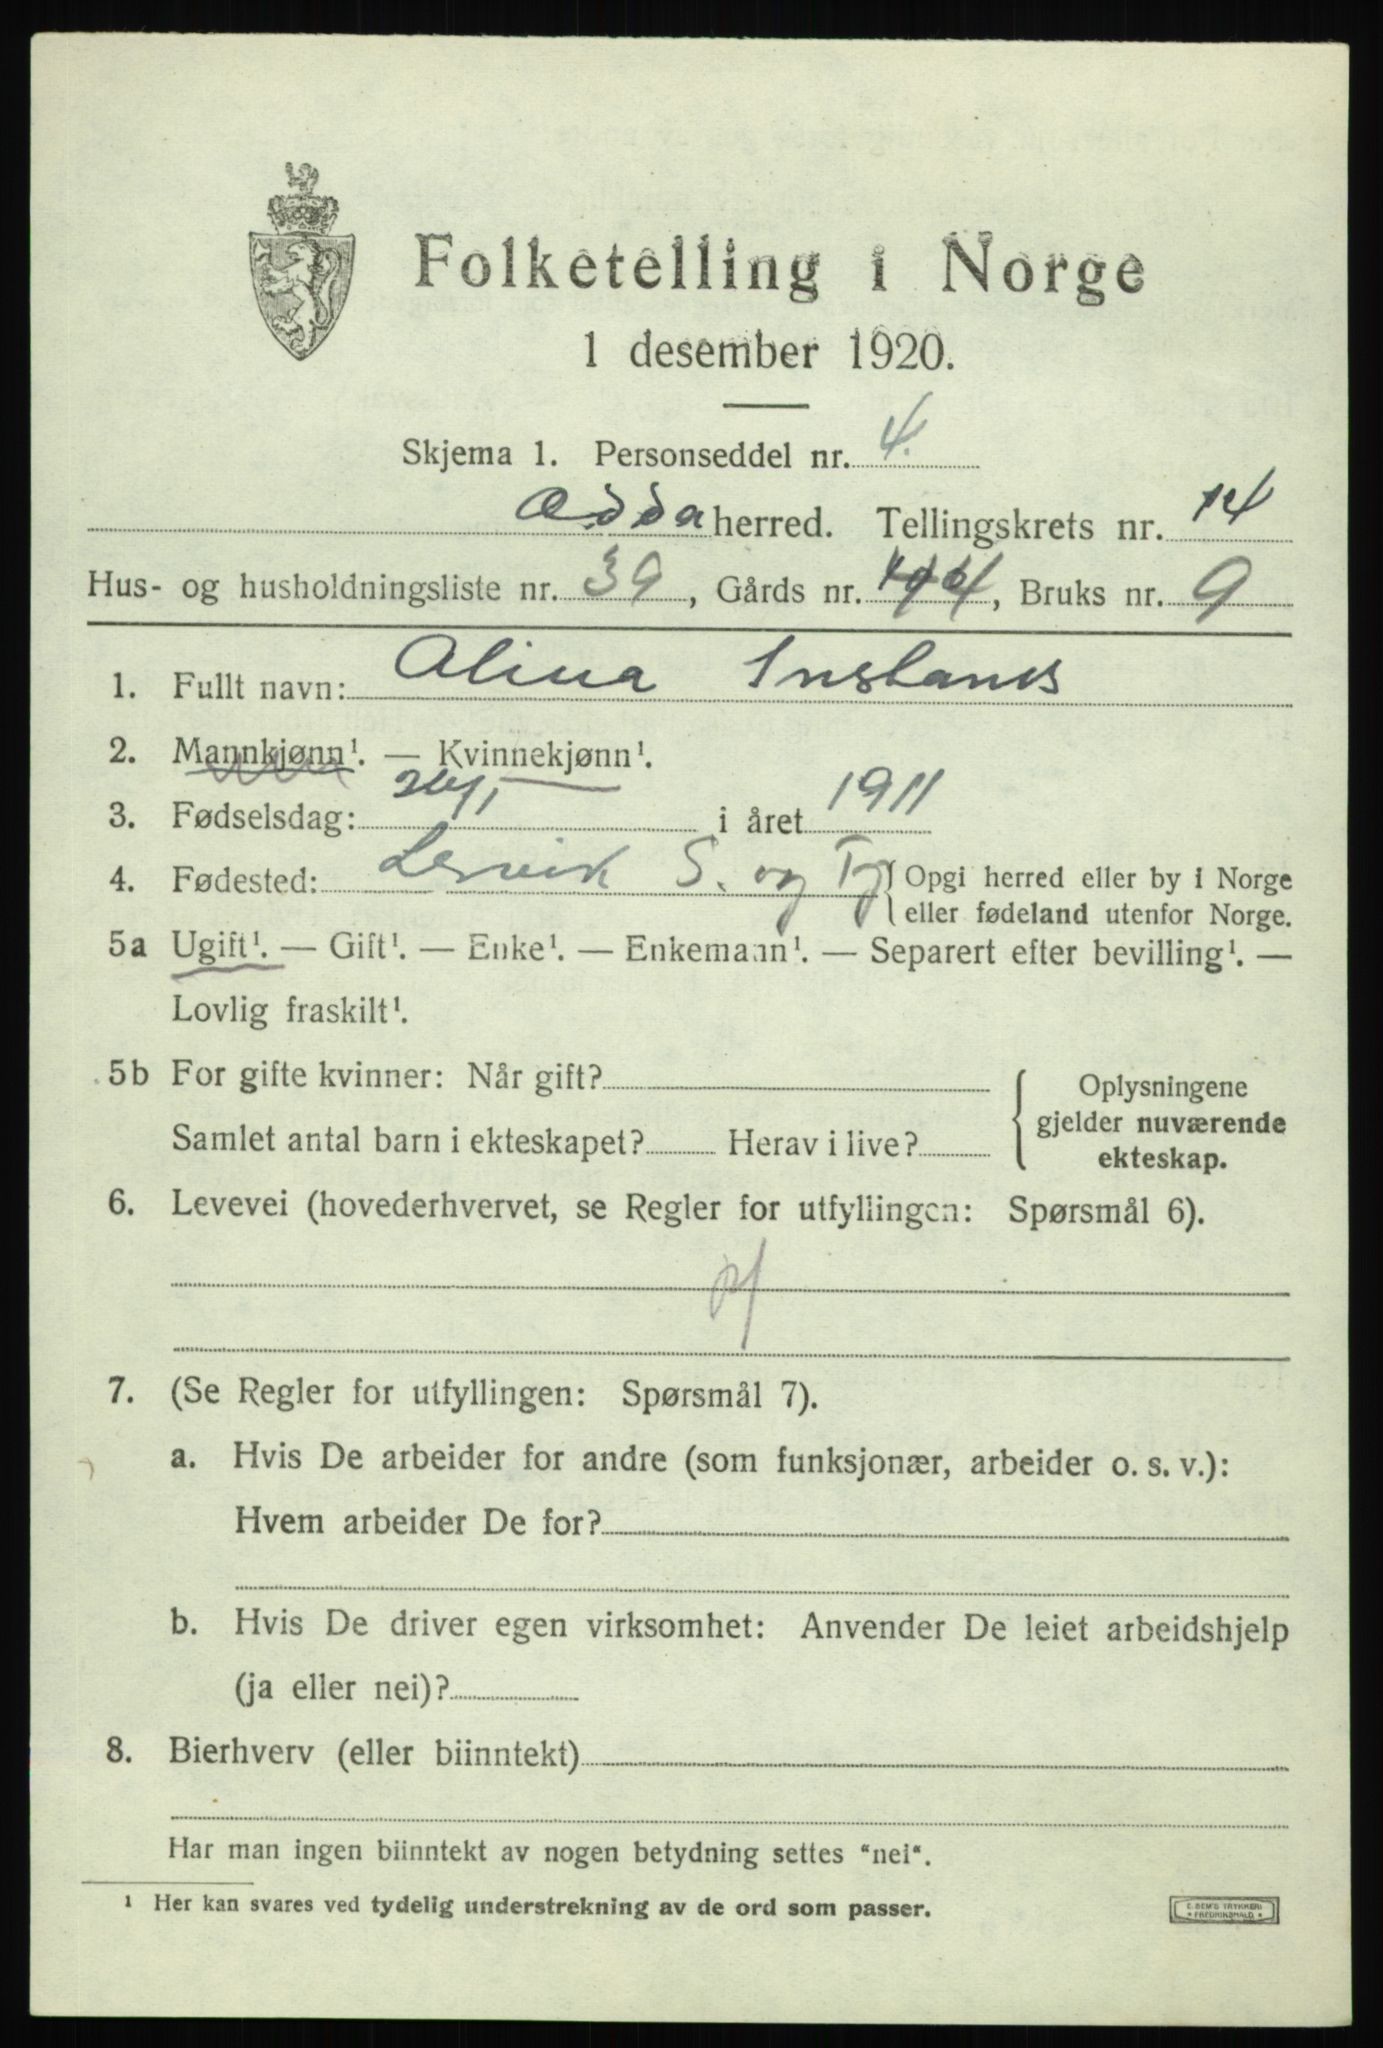 Folketelling i Norge
1 desember 1920.
Skjema 1. Personseddel nr. 4.
Odda herred. Tellingskrets nr. 14
Hus- og husholdningsliste nr. 39, Gårds nr. Bruks nr. 9
1. Fullt navn: Alina
2. Mannkjønn¹. — Kvinnekjønn¹.
3. Fødselsdag: i året 1911
4. Fødested: Lervik S. og Opgi herred eller by i Norge
eller fødeland utenfor Norge.
5a Ugift¹. — Gift¹. — Enke¹. — Enkemann¹. — Separert efter bevilling¹. —
Lovlig fraskilt¹.
5b For gifte kvinner: Når gift?
Samlet antal barn i ekteskapet? Herav i live?
Oplysningene
gjelder nuværende
ekteskap.
6. Levevei (hovederhvervet, se Regler for utfyllingen: Spørsmål 6).
7. (Se Regler for utfyllingen: Spørsmål 7).
a. Hvis De arbeider for andre (som funksjonær, arbeider o. s. v.):
Hvem arbeider De for?
b. Hvis De driver egen virksomhet: Anvender De leiet arbeidshjelp
(ja eller nei)?
8. Bierhverv (eller biinntekt)
Har man ingen biinntekt av nogen betydning settes "nei".
¹ Her kan svares ved tydelig understrekning av de ord som passer.
E. SEM'S TRYKKERI
* FREDRIKSHALD. *